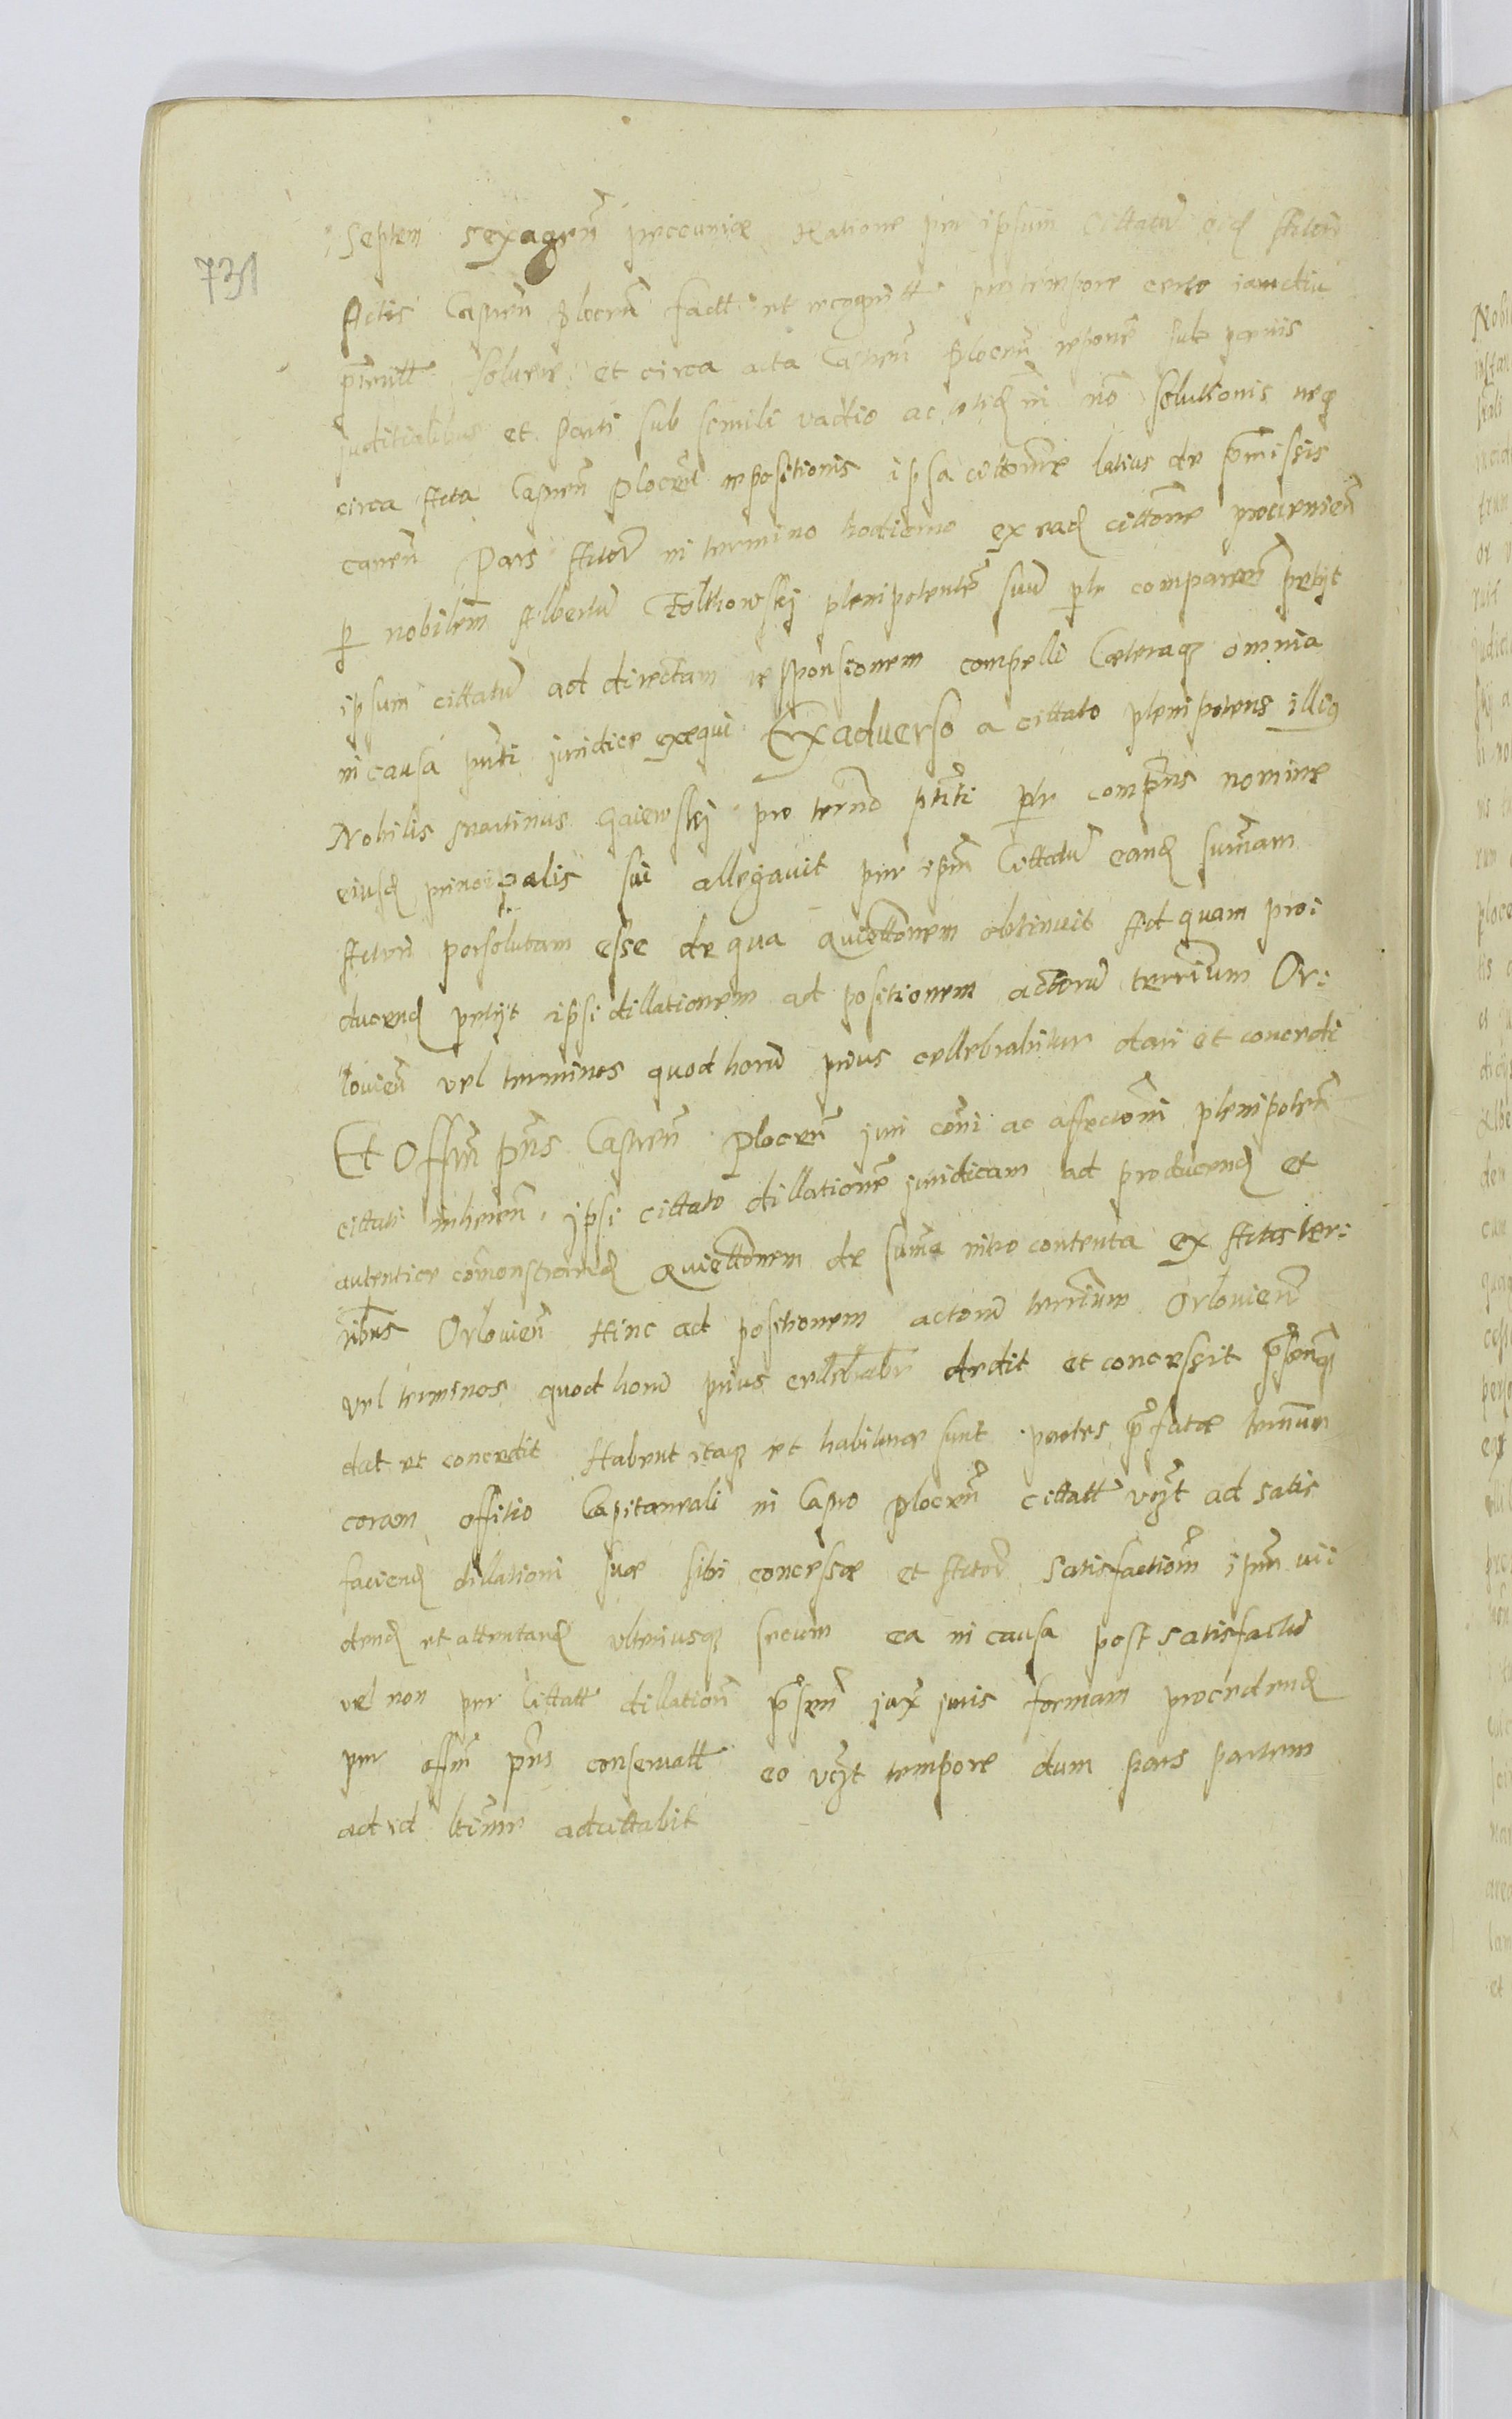 731
Septem sexagen̄ peccuniæ Ratione per ipsum Cittatū eid Actori
Actis Castren̄ Plocen̄ factt et recognitt pro tempore certo iamdiu
solvere et circa acta Castren̄ Plocen̄ reponē sub pœnis
juditialibus et Parti sub simili vadio ac in nō soluttonis neq
circa Acta Castren̄ Plocen̄ repositionis ipsa cittone latius de p̄missis
canen̄ Pars Actor̄ in termino hodierno ex ead cittone provenien̄
p nobilem Albertū plenipotentē suū plr comparen̄ petyt
ipsum cittatū ad directam responsionem compelli Cæteraq omnia
in causa pn̄ti juridice exequi Ex adverso a cittato plenipotens illiq
Nobilis Martinus Gaiewskj pro termō pn̄ti plr comp̄ns nomine
eiusd principalis sui allegavit per ipm̄ Cittatū eand sum̄am
Actori persolutam esse de qua quiettonem obtinuit Ad quam pro:
ducend petyt ipsi dillationem ad positionem actorū terr̄ium Or:
lovien̄ vel terminos quod horū prius cellebrabitur dari et concedi
Et Offm̄ pn̄s Castren̄ Plocen̄ juri cōi ac affectōni plenipoten̄
cittati inheren̄. ipsi cittato dillationē juridicam ad producend et
autentice com̄onstrand Quiettonem de sum̄a intro contenta ex Actis ter:
ribus Orlovien̄ Hinc ad positionem actorū terr̄ium Orlovien̄
vel terminos quod horū prius cellebrabr dedit et concessit p̄sentq
dat et concedit Habent itaq et habituræ sunt partes p̄fatæ termm
coram offitio Capitaneali in Castro Plocen̄ cittatt vȝt ad satis
faciend dillationi suæ sibi concessæ et Actor̄ satisfactiōni ipm̄ vi:
dend et attentand ulteriusq secum ea in causa post satisfactū
vel non per Cittatt dillationi p̄sen̄ jux̄ juris formam procedend
per offm̄ pn̄s conservatt eo vȝt tempore dum pars partem
ad id ltime adcittabit